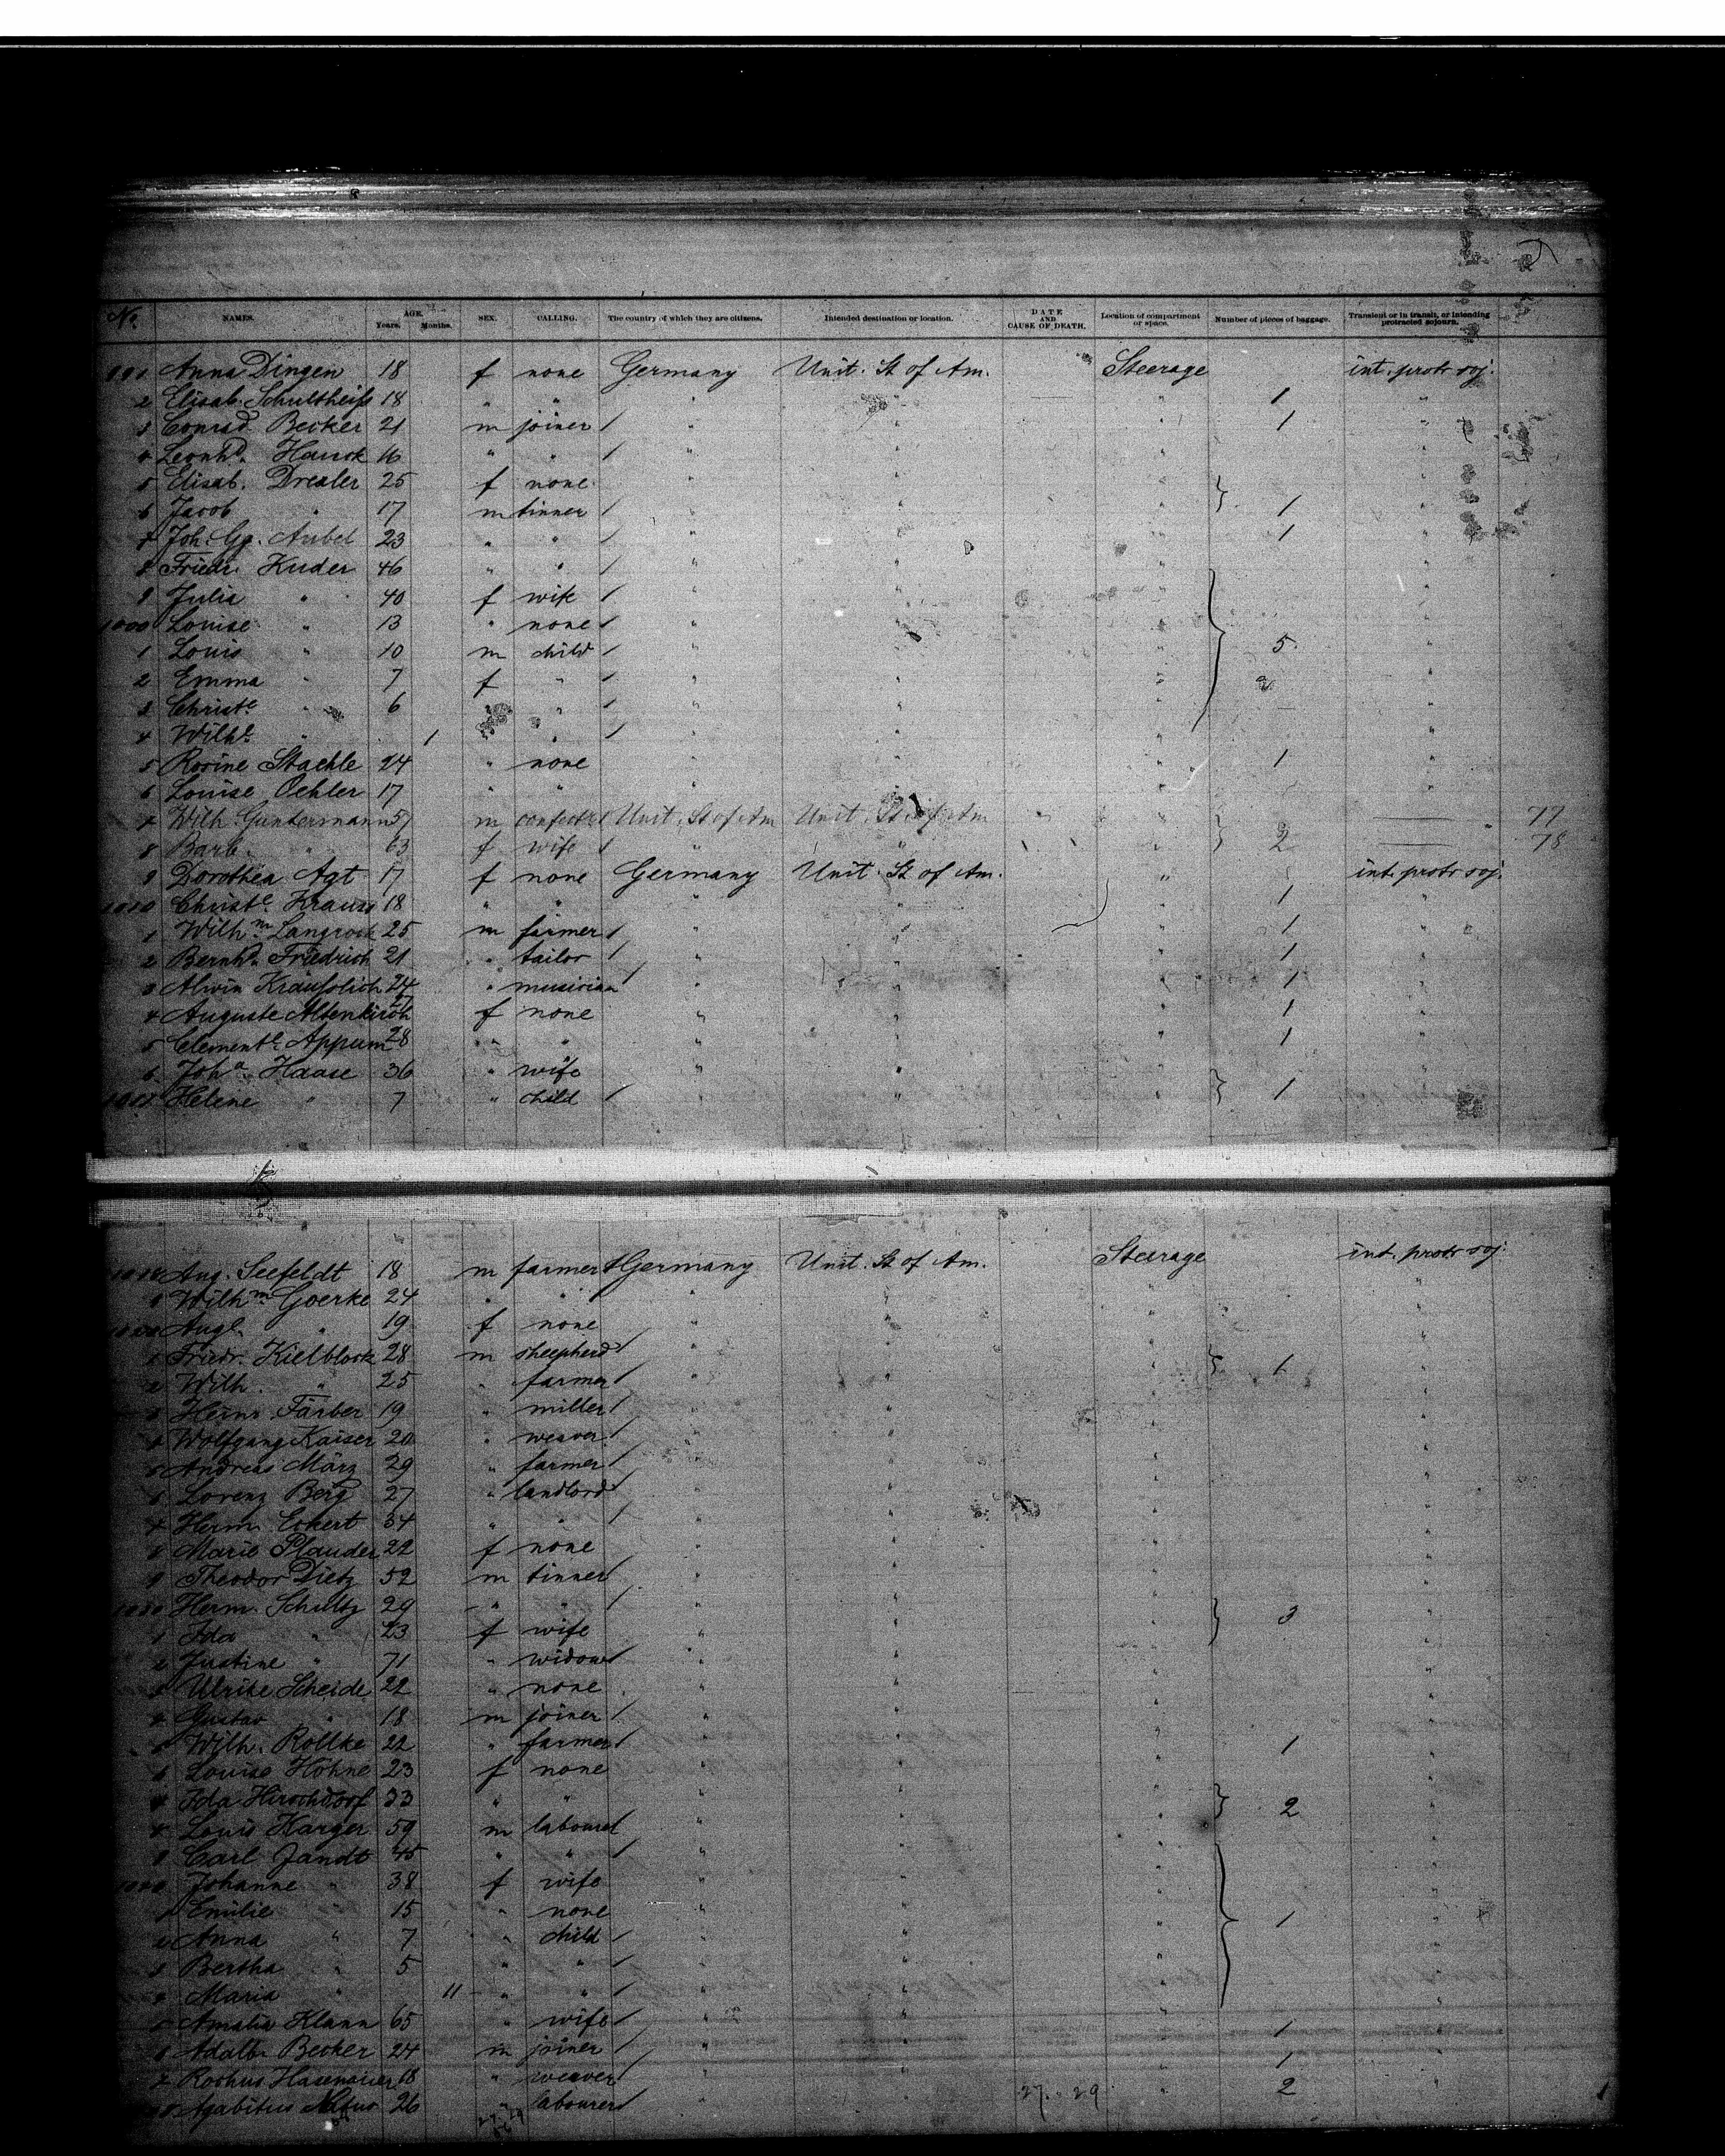 No. NAMES. AGE. Years. Months. SEX. CALLING. The country of which they are citizens. Intended destination or location. DATE AND CAUSE OF DEATH. Location of compartment or space. Number of pieces of baggage. Transient or in transit, or intending protracted sojourn.
991 Anna Dingen 18 f none Germany Unit. St of Am. Steerage int. protr soj.
2 Elisab. Schultheiß 18 " " " " " 1 "
3 Conrad Becker 21 m joiner " " " 1 "
4 Leonhd. Hauck 16 " " " " " "
5 Elisab. Drexler 25 f none " " " "
6 Jacob " 17 m tinner " " " 1 "
7 Joh. Gg. Aubel 23 " " " " " 1 "
8 Friedr. Kuder 46 " " " " " "
9 Julia " 40 f wife " " " "
1000 Louise " 13 " none " " " "
1 Louis " 10 m child " " " 5 "
2 Emma " 7 f " " " " "
3 Christe " 6 " " " " " "
4 Wilhe " 1 " " " " " "
5 Rosine Staehle 24 " none " " " 1 "
6 Louise Oehler 17 " " " " " "
7 Wilh. Guntermann 51 m Unit. St of Am Unit. St of Am " 77
8 Barb. " 63 f wife " " " 2 78
9 Dorothea Agt 17 f none Germany Unit. St of Am. " int. protr soj.
1010 Christe Krauss 18 " " " " " 1 "
1 Wilhm. Langrock 25 m farmer " " " 1 "
2 Bernhd. Friedrich 21 " tailor " " " 1 "
3 Alwin Kräußlich 24 " musician " " " 1 "
4 Auguste Altenkirch 27 f none " " " 1 "
5 Clemente Appum 28 " " " " " 1 "
6 Joha. Haase 36 " wife " " " "
1017 Helene " 7 " child " " " 1 "
1018 Aug. Seefeldt 18 m farmer Germany Unit. St of Am. Steerage int. protr soj.
9 Wilhm. Goerke 24 " " " " " "
1020 Augl. " 19 f none " " " "
1 Friedr. Kielblock 28 m sheepherd " " " 1 "
2 Wilh. " 25 " farmer " " " "
3 Heinr. Färber 19 " miller " " " "
4 Wolfgang Kaiser 20 " weaver " " " "
5 Andreas März 29 " farmer " " " "
6 Lorenz Berg 27 " landlord " " " "
7 Herm. Eckert 34 " " " " " "
8 Marie Plauder 22 f none " " " "
9 Theodor Dietz 52 m tinner " " " "
1030 Herm. Schultz 29 " " " " " 3 "
1 Ida " 23 f wife " " " "
2 Justine " 71 " widow " " " "
3 Ulrike Scheide 22 " none " " " "
4 Gustav " 18 m joiner " " " "
5 Wilh. Röllke 22 " farmer " " " 1 "
6 Louise Höhne 23 f none " " " "
7 Ida Hirschdorf 33 " " " " " 2 "
8 Louis Karger 59 m labourer " " " "
9 Carl Jandt 45 " " " " " "
1040 Johanne " 38 f wife " " " "
1 Emilie " 15 " none " " " 1 "
2 Anna " 7 " child " " " "
3 Bertha " 5 " " " " " "
4 Maria " 11 " " " " " "
5 Amalie Klann 65 " wife " " " 1 "
6 Adalb. Becker 24 m joiner " " " 1 "
7 Rochus Hasenaier 18 " weaver " " " 2 "
8 Agabitus 26 " labourer " " 27. 29 "